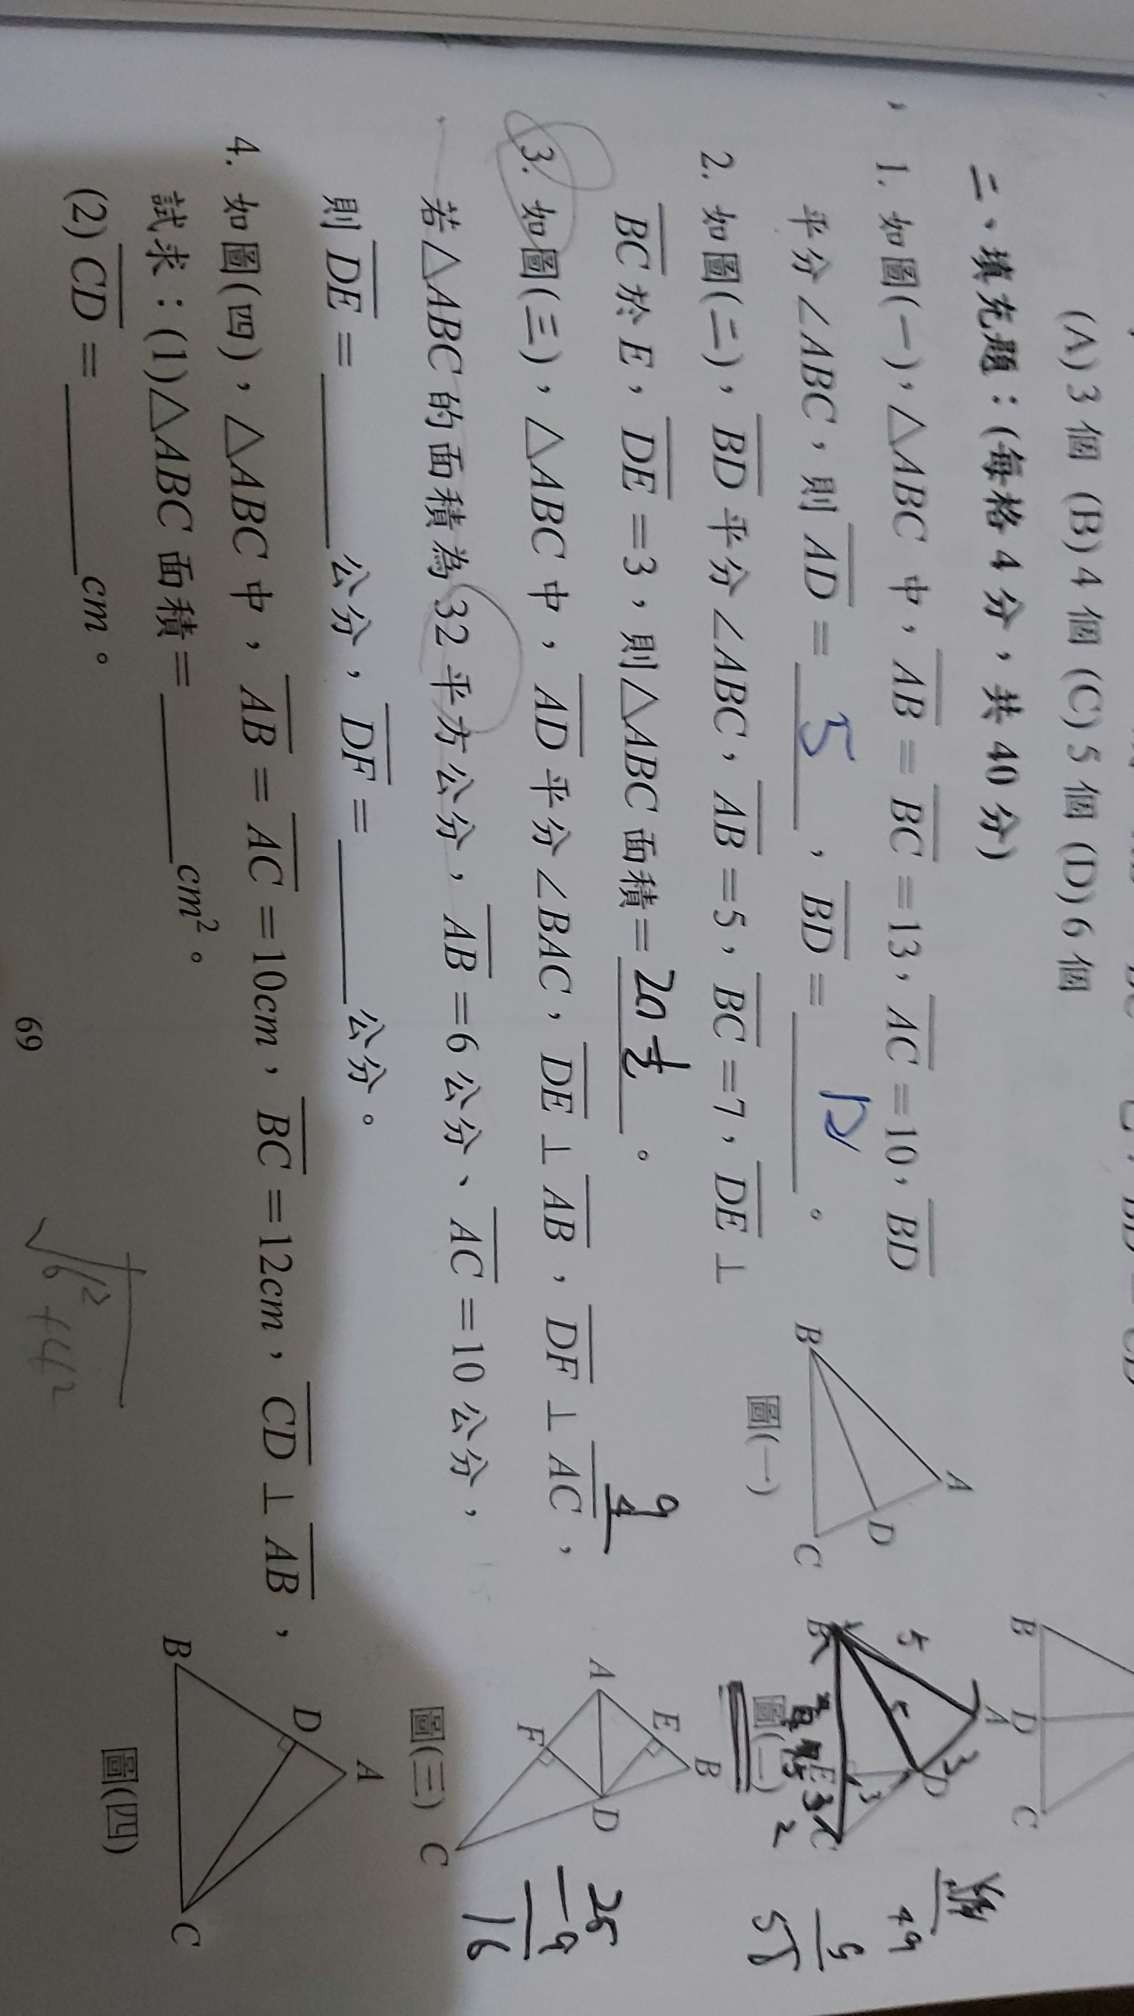 (A) 3 個 (B) 4 個 (C) 5 個 (D) 6 個
二、填充題：(每格 4 分，共 40 分)
1. 如圖(一)，△ABC 中，AB = BC = 13，AC = 10，BD
平分∠ABC，則 AD = 5，BD = 12。
2. 如圖(二)，BD 平分∠ABC，AB = 5，BC = 7，DE ⊥
BC 於 E，DE = 3，則△ABC 面積=
3. 如圖(三)，△ABC 中，AD 平分∠BAC，DE ⊥ AB，DF ⊥ AC，
若△ABC 的面積為 32 平方公分，AB = 6 公分、AC = 10 公分，
則 DE = 公分，DF = 公分。
4. 如圖(四)，△ABC 中，AB = AC = 10cm，BC = 12cm，CD ⊥ AB，
試求：(1)△ABC 面積= cm²。
(2) CD = cm。
69
B D C
A B C D
圖(一)
A B D E C
5 3 3
圖(二)
A B C D E F
圖(三)
A B C D
圖(四)
9
4
49
25
-9
16
√6²+4²